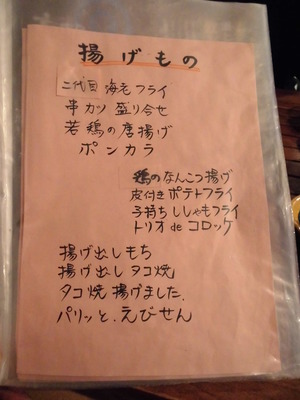 揚げもの
二代目 海老フライ
串カツ 盛り合せ
若鶏の唐揚げ
ポンカラ
鶏のなんこつ揚げ
皮付きポテトフライ
子持ちししゃもフライ
トリオ de コロッケ
揚げ出しもち
揚げ出しタコ焼
タコ焼揚げました.
パリッと.えびせん